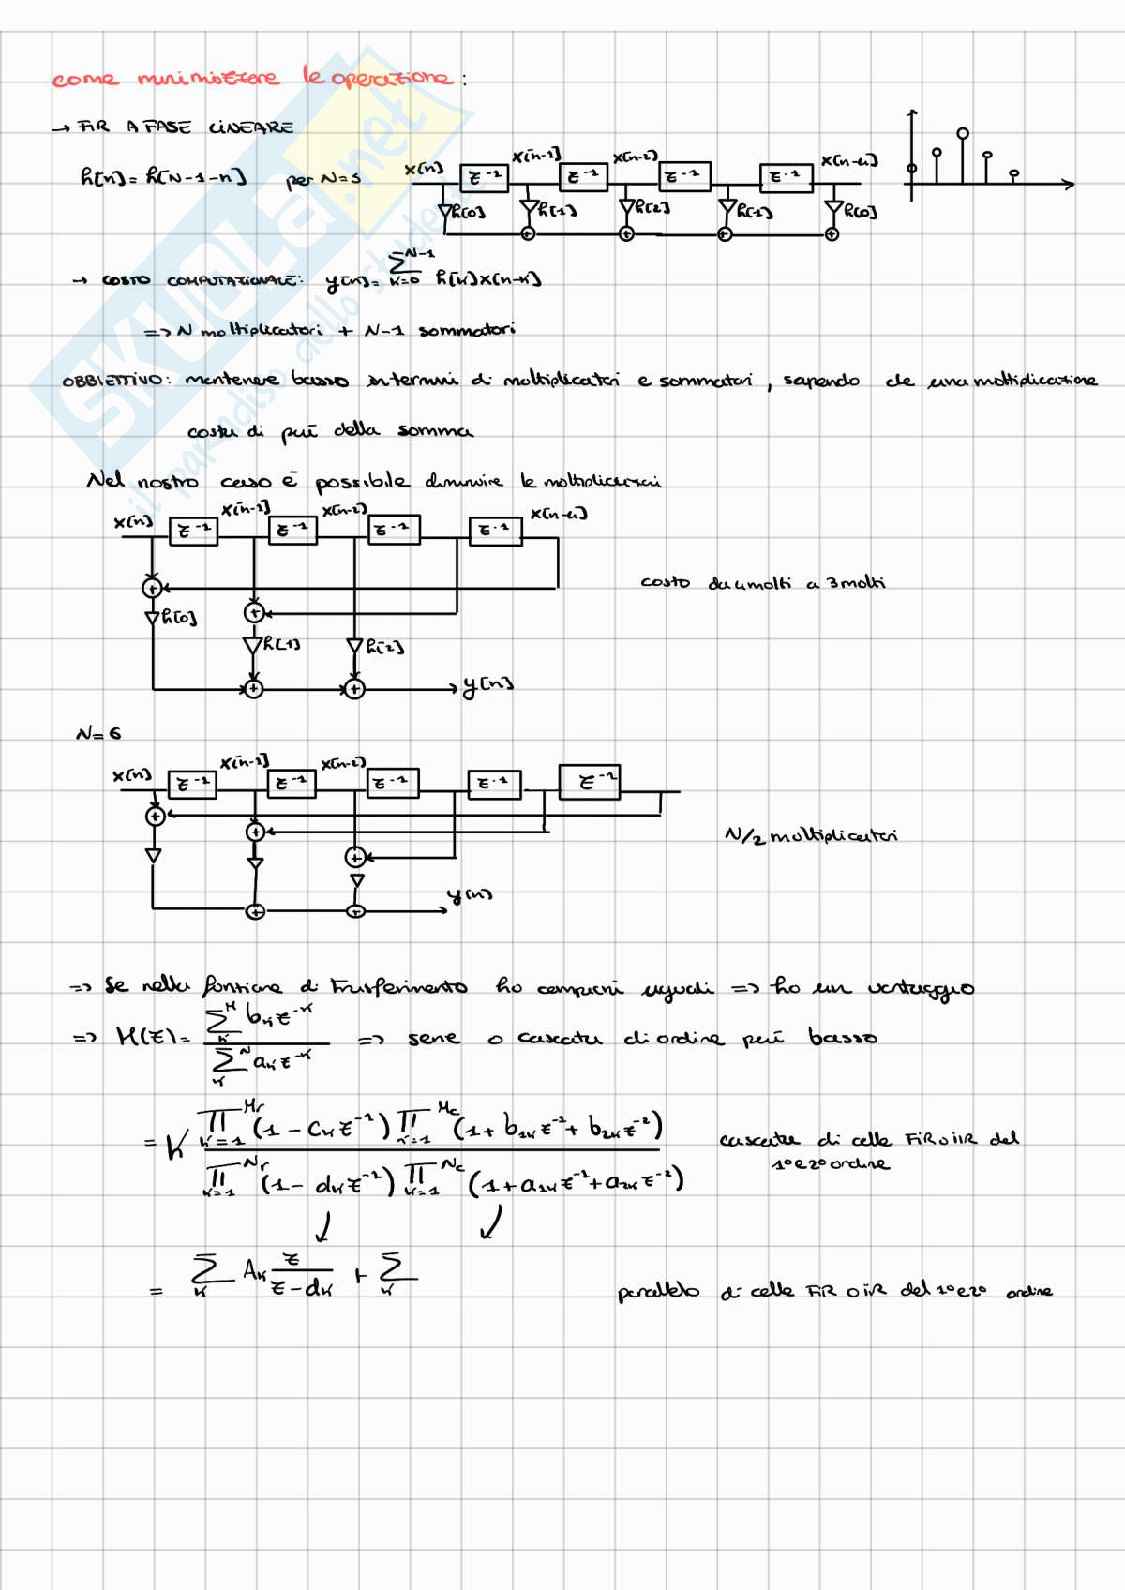 come minimizzare le operazione:
→ FIR A FASE LINEARE
h[n] = h[N-1-n] per N=5
x[n] z⁻¹ x[n-1] z⁻¹ x[n-2] z⁻¹ z⁻¹ x[n-4]
h[0] h[1] h[2] h[1] h[0]
→ COSTO COMPUTAZIONALE: y[n] = ∑_{k=0}^{N-1} h[k]x[n-k]
=> N moltiplicatori + N-1 sommatori
OBBIETTIVO: mantenere basso in termini di moltiplicatori e sommatori, sapendo che una moltiplicazione
costa di più della somma
Nel nostro caso è possibile diminuire le moltiplicazioni
x[n] z⁻¹ x[n-1] z⁻¹ x[n-2] z⁻¹ z⁻¹ x[n-4]
costo da 4 molti a 3 molti
h[0]
h[1] h[2]
y[n]
N=6
x[n] z⁻¹ x[n-1] z⁻¹ x[n-2] z⁻¹ z⁻¹ z⁻¹
N/2 moltiplicatori
y[n]
=> Se nella funzione di trasferimento ho campioni uguali => ho un vantaggio
=> H(z) = ∑_k^M b_k z^{-k} / ∑_k^N a_k z^{-k} => serie o cascata di ordine più basso
= K ∏_{k=1}^{Mr} (1 - c_k z⁻¹) ∏_{k=1}^{Mc} (1 + b_{1k} z⁻¹ + b_{2k} z⁻²) / ∏_{k=1}^{Nr} (1 - d_k z⁻¹) ∏_{k=1}^{Nc} (1 + a_{1k} z⁻¹ + a_{2k} z⁻²)
cascata di celle FIR o IIR del
1° e 2° ordine
= ∑_k A_k z / (z - d_k) + ∑_k
parallelo di celle FIR o IIR del 1° e 2° ordine
SKUOLA.net
il paradiso dello studente